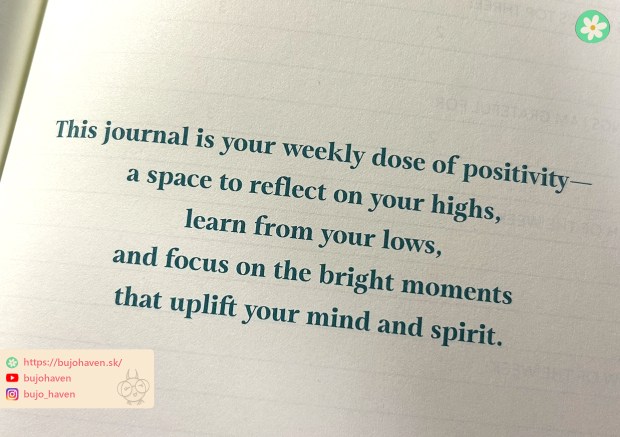 This journal is your weekly dose of positivity—
a space to reflect on your highs,
learn from your lows,
and focus on the bright moments
that uplift your mind and spirit.
https://bujohaven.sk/
bujohaven
bujo_haven